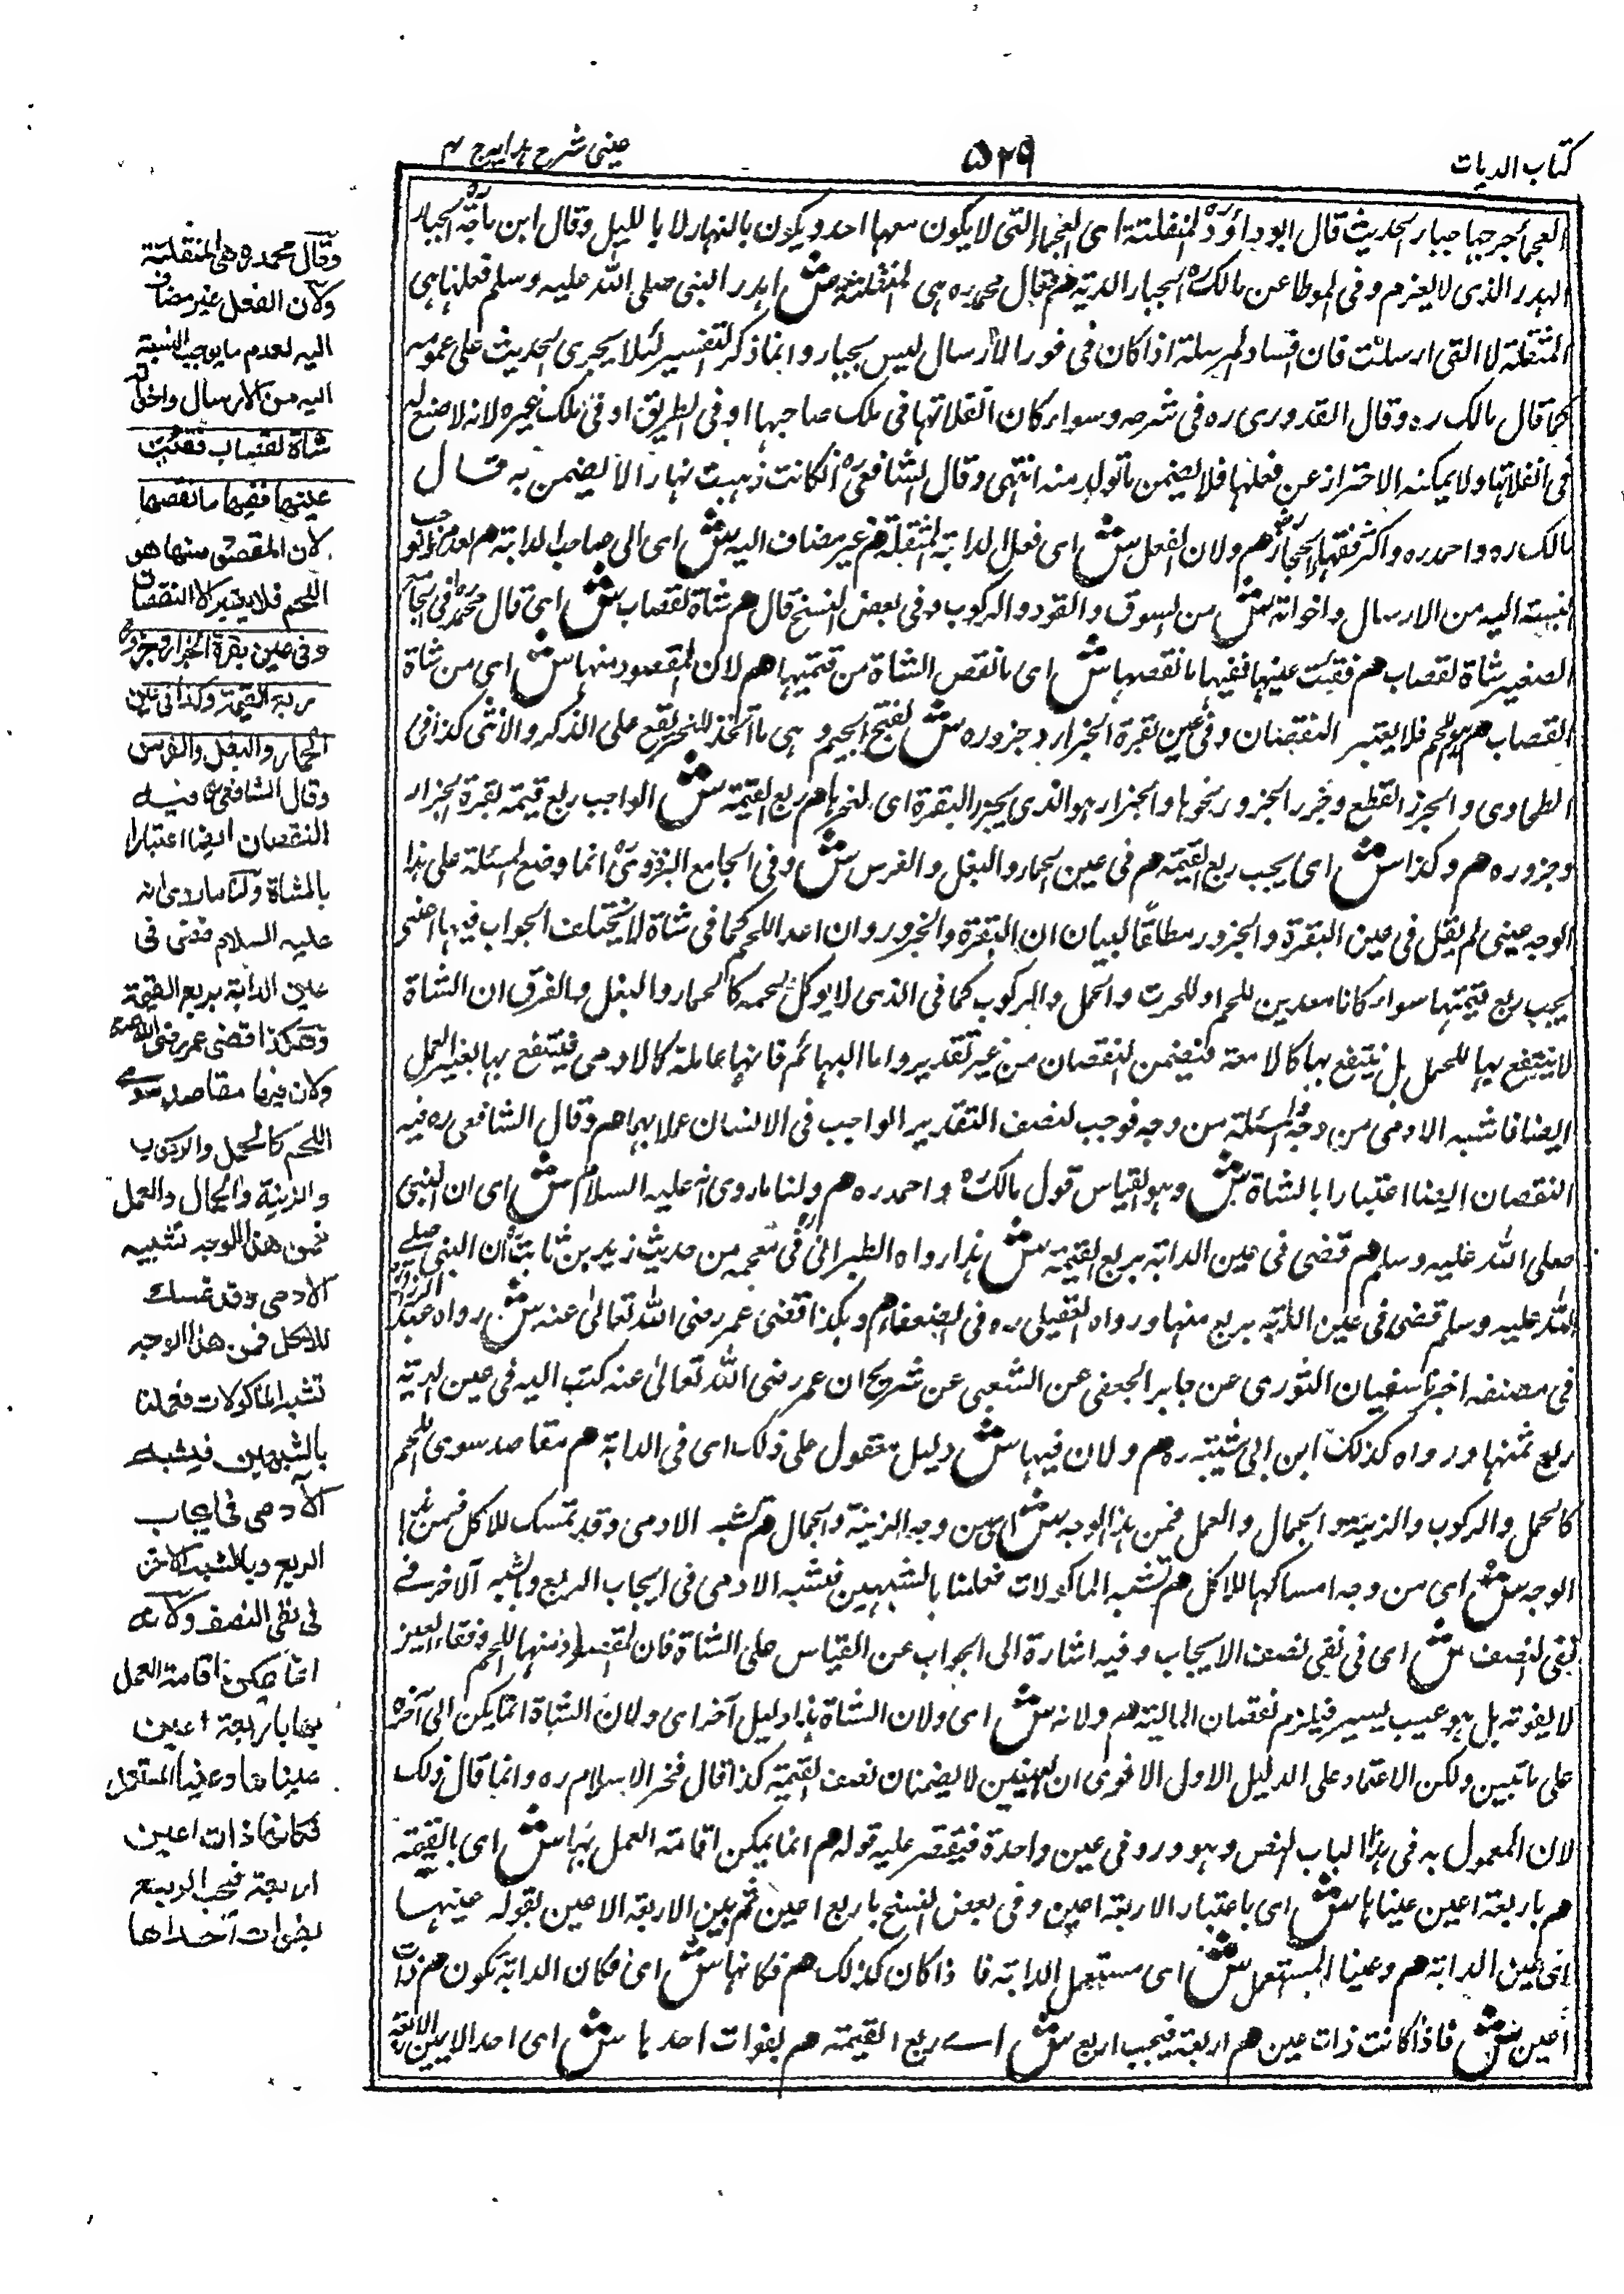 كتاب الديات
۵۲۹
عینی شرح ہدایہ ج ۴
العجماء جرحها جبار الحديث قال ابو داؤد المنفلتة اى العجماء التى لا يكون معها احد ويكون بالنهار لا بالليل وقال ابن ماجه الجبار
الهدر الذى لا يغرم وفى الموطا عن مالك الجبار الدية هم قال محمد ره هى المنفلتة ش اهدر النبى صلى الله عليه وسلم فعلها هى
المنفلتة لا التى ارسلت فان افساد المرسلة اذا كان فى فور الارسال ليس بجبار وانما ذكر التفسير لئلا يجرى الحديث على عمومه
كما قال مالك ره وقال القدورى ره فى شرحه وسواء كان انفلاتها فى ملك صاحبها او فى الطريق او فى ملك غيره لانه لا صنع له
فى انفلاتها ولا يمكنه الاحتراز عن فعلها فلا يضمن ما تولد منه انتهى وقال الشافعى ان كانت ذهبت نهارا لا يضمن به قال
مالك ره واحمد ره واكثر فقهاء الحجاز هم ولان الفعل ش اى فعل الدابة المنفلتة هم غير مضاف اليه ش اى الى صاحب الدابة هم لعدم ما يوجب
النسبة اليه من الارسال واخواته ش من السوق والقود والركوب وفى بعض النسخ قال هم شاة لقصاب ش اى قال محمد فى الجامع
الصغير شاة لقصاب هم فقئت عينها ففيها ما نقصها ش اى ما نقص الشاة من قيمتها هم لان المقصود منها ش اى من شاة
القصاب هم هو اللحم فلا يعتبر النقصان وفى عين بقرة الجزار وجزوره ش بفتح الجيم وهى ما اتخذ للنحر يقع على الذكر والانثى كذا فى
الطحاوى والجزر القطع وجزر الجزور نحوها والجزار هو الذى يجزر البقرة اى ينحرها هم ربع القيمة ش الواجب ربع قيمة بقرة الجزار
وجزوره هم وكذا ش اى يجب ربع القيمة هم فى عين الحمار والبغل والفرس ش وفى الجامع البزدوى انما وضع المسئلة على هذا
الوجه يعنى لم يقل فى عين البقرة والجزور مطلقا لبيان ان البقرة والجزور وان اعد اللحم كما فى شاة لا يختلف الجواب فيها اعنى
يجب ربع قيمتها سواء كانا معدين للحم او للحرث والحمل والركوب كما فى الذى لا يوكل لحمه كالحمار والبغل والفرق ان الشاة
لا ينتفع بها للحمل بل ينتفع بها كالامتعة فيضمن النقصان من غير تقدير واما البهائم فانها عاملة كالادمى فينتفع بها بغير العمل
ايضا فاشبه الادمى من وجه والمسئلة من وجه فوجب نصف التقدير الواجب فى الانسان عملا بهما هم وقال الشافعى ره فيه
النقصان ايضا اعتبارا بالشاة ش وهو القياس قول مالك واحمد ره هم ولنا ما روى انه عليه السلام ش اى ان النبى
صلى الله عليه وسلم هم قضى فى عين الدابة بربع القيمة ش هذا رواه الطبرانى فى معجمه من حديث زيد بن ثابت ان النبى صلى
الله عليه وسلم قضى فى عين الدابة بربع منها ورواه العقيلى ره فى الضعفاء هم وهكذا قضى عمر رضى الله تعالى عنه ش رواه عبد الرزاق
فى مصنفه اخبرنا سفيان الثورى عن جابر الجعفى عن الشعبى عن شريح ان عمر رضى الله تعالى عنه كتب اليه فى عين الدابة
ربع ثمنها ورواه كذلك ابن ابى شيبة ره هم ولان فيها ش دليل معقول على ذلك اى فى الدابة هم مقاصد سوى اللحم
كالحمل والركوب والزينة والجمال والعمل فمن هذا الوجه ش اى من وجه الزينة والجمال هم تشبه الادمى وقد تمسك للاكل فمن هذا
الوجه ش اى من وجه امساكها للاكل هم تشبه الماكولات فعملنا بالشبهين فبشبه الادمى فى ايجاب الربع وبالشبه الآخر فى
نفى النصف ش اى فى نفى نصف الايجاب وفيه اشارة الى الجواب عن القياس على الشاة فان المقصود منها اللحم وفقاء العين
لا يفوته بل هو عيب يسير فيلزم نقصان المالية هم ولانه ش اى ولان الشاة هذا دليل آخر اى ولان الشاة انما يكن الى آخره
على ما تبين ولكن الاعتماد على الدليل الاول الاقوى ان العينين لا يضمنان نصف القيمة كذا قال فخر الاسلام ره وانما قال ذلك
لان المعمول به فى هذا الباب النص وهو ورد فى عين واحدة فيقتصر عليه قوله هم انما يمكن اقامة العمل بها ش اى بالقيمة
هم باربعة اعين عيناها ش اى باعتبار الاربعة اعين وفى بعض النسخ باربع اعين ثم بين الاربعة الاعين بقوله عينها
اى عين الدابة هم وعينا المستعمل ش اى مستعمل الدابة فاذا كان كذلك هم فكانها ش اى فكان الدابة تكون هم ذات
اعين ش فاذا كانت ذات عين هم اربعة فيجب الربع ش اے ربع القيمة هم بفوات احدها ش اى احد الاعين الاربعة
وقال محمد ره هى المنفلتة
ولان الفعل غير مضاف
اليه لعدم ما يوجب النسبة
اليه من الارسال واخواته
شاة لقصاب فقئت
عينها ففيها ما نقصها
لان المقصود منها هو
اللحم فلا يعتبر الا النقصان
وفى عين بقرة الجزار وجزوره
ربع القيمة وكذا فى عين
الحمار والبغل والفرس
وقال الشافعى ره فيه
النقصان ايضا اعتبارا
بالشاة ولنا ما روى انه
عليه السلام قضى فى
عين الدابة بربع القيمة
وهكذا قضى عمر رضى الله عنه
ولان فيها مقاصد سوى
اللحم كالحمل والركوب
والزينة والجمال والعمل
فمن هذا الوجه تشبه
الادمى وقد تمسك
للاكل فمن هذا الوجه
تشبه الماكولات فعملنا
بالشبهين فبشبه
الآدمى فى ايجاب
الربع وبالشبه الآخر
فى نفى النصف ولانه
انما يمكن اقامة العمل
بها باربعة اعين
عيناها وعينا المستعمل
فكانها ذات اعين
اربعة فيجب الربع
بفوات احداها